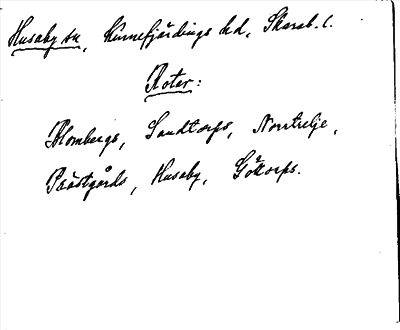 Husaby sn, Kinnefjärdings hd, Skarab. l.
Rotar:
Blombergs, Sandtorps, Norrtelje,
Prästgårds, Husaby, Götorps.